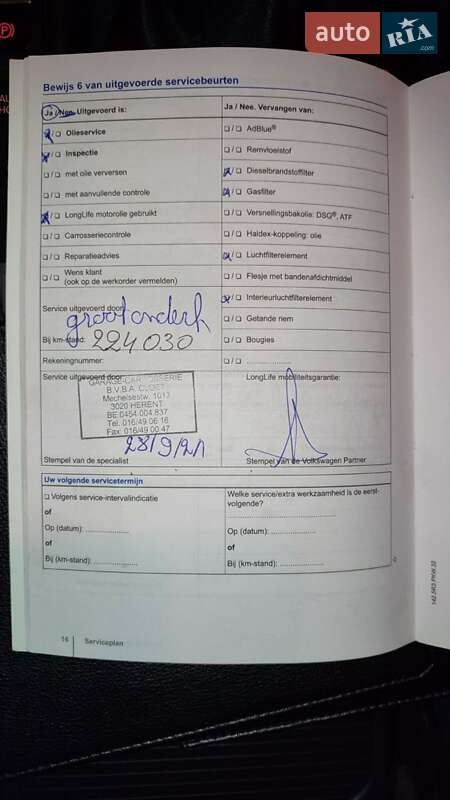 auto RIA .com
Bewijs 6 van uitgevoerde servicebeurten
Ja / Nee. Uitgevoerd is:
Olieservice
Inspectie
met olie verversen
met aanvullende controle
LongLife motorolie gebruikt
Carrosseriecontrole
Reparatieadvies
Wens klant
(ook op de werkorder vermelden)
Service uitgevoerd door:
groot onderh
Bij km-stand: 224030
Rekeningnummer:
Ja / Nee. Vervangen van:
AdBlue®
Remvloeistof
Dieselbrandstoffilter
Gasfilter
Versnellingsbakolie: DSG®, ATF
Haldex-koppeling: olie
Luchtfilterelement
Flesje met bandenafdichtmiddel
Interieurluchtfilterelement
Getande riem
Bougies
Service uitgevoerd door:
B.V.B.A.
Mechelsestw. 1013
3020 HERENT
BE 0454.004.837
Tel. 016/49 06 16
Fax. 016/49 00 47
28/9/21
Stempel van de specialist
LongLife mobiliteitsgarantie:
Stempel van de Volkswagen Partner
Uw volgende servicetermijn
Volgens service-intervalindicatie
of
Op (datum): ..................
of
Bij (km-stand): ..................
Welke service/extra werkzaamheid is de eerst-
volgende?
Op (datum): ..................
of
Bij (km-stand): ..................
16 Serviceplan